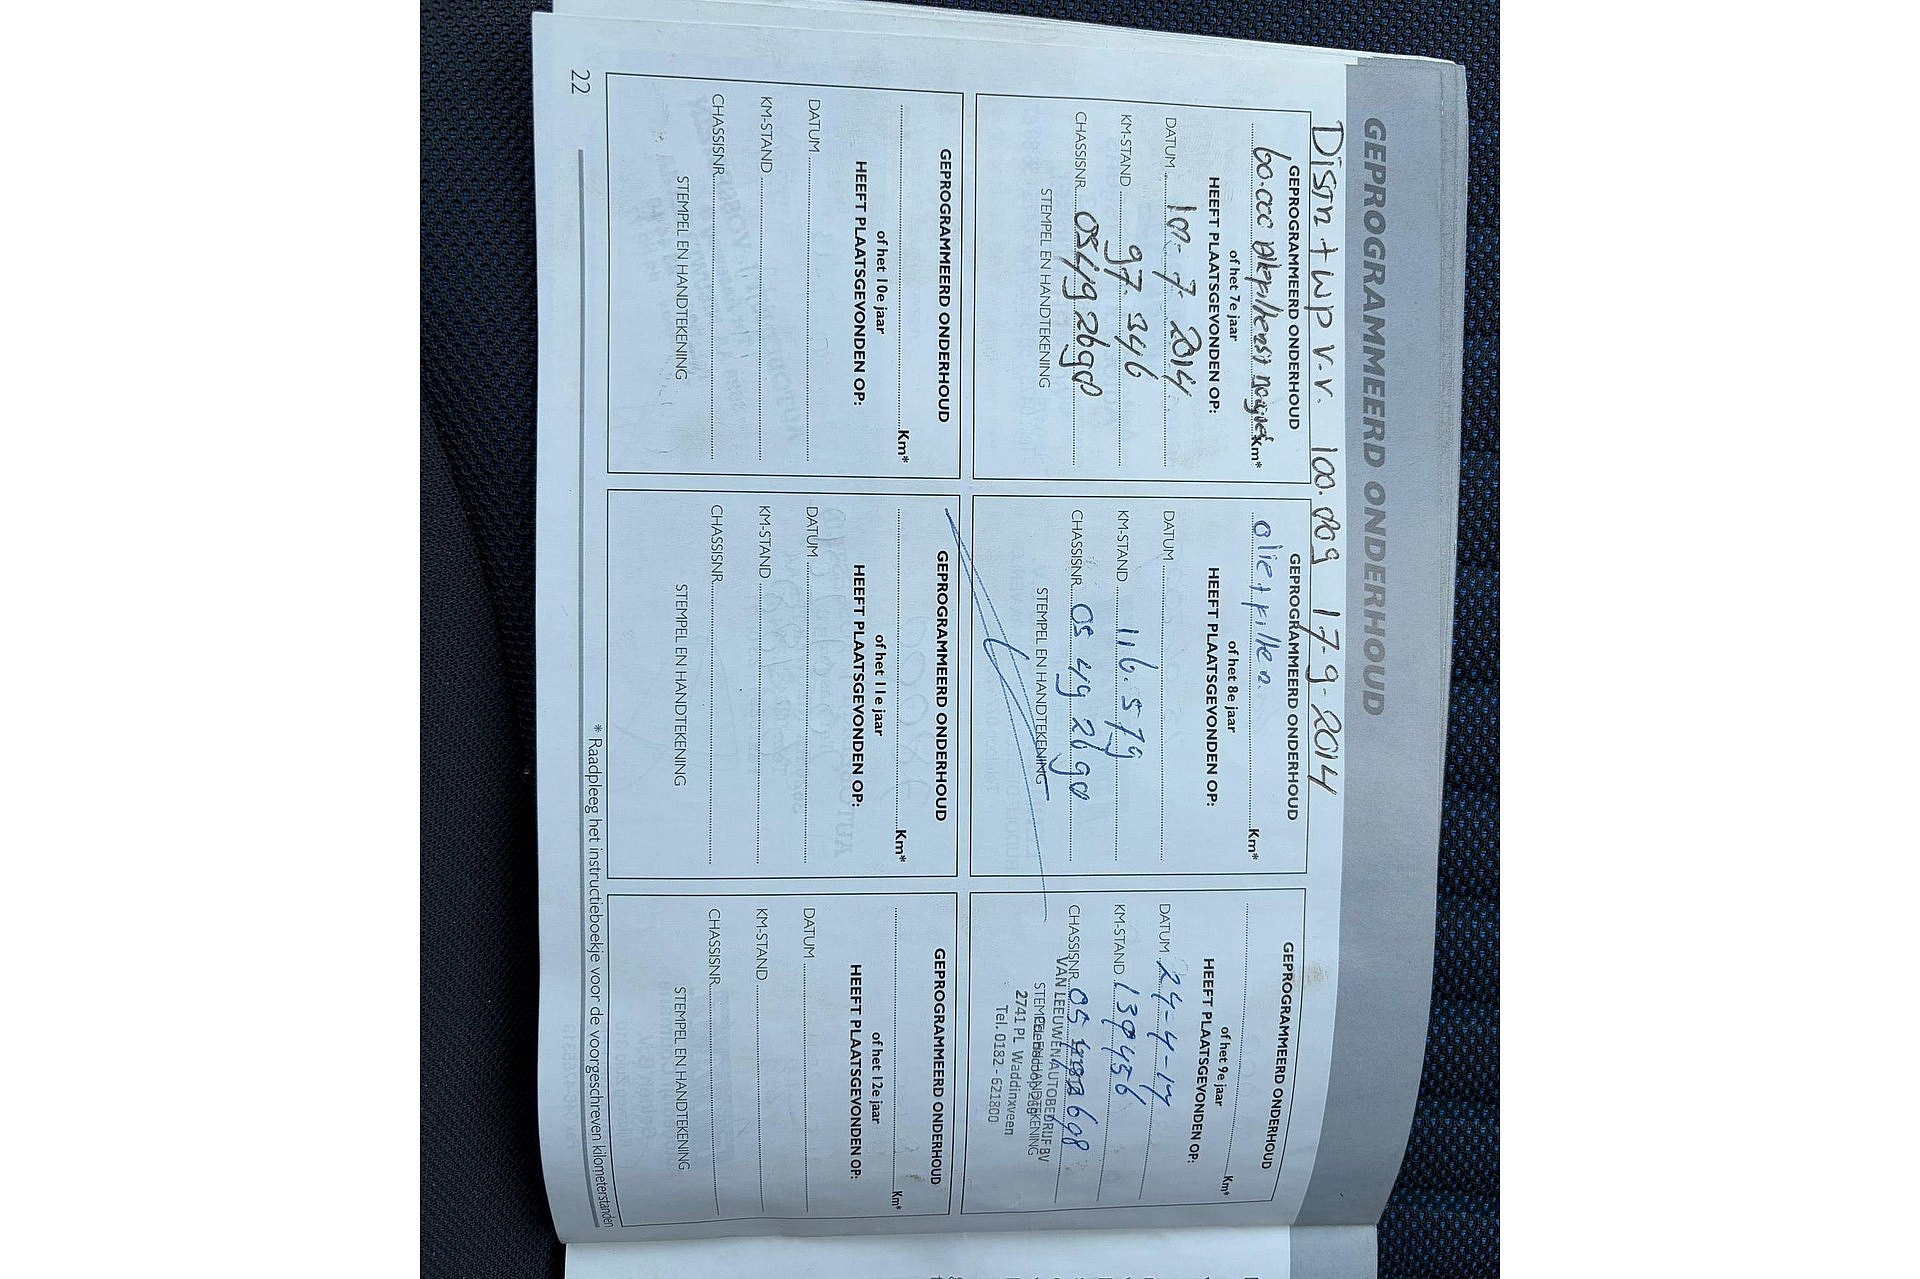 GEPROGRAMMEERD ONDERHOUD
Distr + WP v.v. 100.809 17-9-2014
GEPROGRAMMEERD ONDERHOUD
60.000 Km*
of het 7e jaar
HEEFT PLAATSGEVONDEN OP:
DATUM 10-7-2014
KM-STAND 97.346
CHASSISNR. 05492698
STEMPEL EN HANDTEKENING
GEPROGRAMMEERD ONDERHOUD
olie + filter. Km*
of het 8e jaar
HEEFT PLAATSGEVONDEN OP:
DATUM
KM-STAND 116.579
CHASSISNR. 05492698
STEMPEL EN HANDTEKENING
GEPROGRAMMEERD ONDERHOUD
Km*
of het 9e jaar
HEEFT PLAATSGEVONDEN OP:
DATUM 24-4-17
KM-STAND 139456
CHASSISNR. 05492698
STEMPEL EN HANDTEKENING
VAN LEEUWEN AUTOBEDRIJF BV
2741 PL Waddinxveen
Tel. 0182 - 621800
GEPROGRAMMEERD ONDERHOUD
Km*
of het 10e jaar
HEEFT PLAATSGEVONDEN OP:
DATUM
KM-STAND
CHASSISNR.
STEMPEL EN HANDTEKENING
GEPROGRAMMEERD ONDERHOUD
Km*
of het 11e jaar
HEEFT PLAATSGEVONDEN OP:
DATUM
KM-STAND
CHASSISNR.
STEMPEL EN HANDTEKENING
GEPROGRAMMEERD ONDERHOUD
Km*
of het 12e jaar
HEEFT PLAATSGEVONDEN OP:
DATUM
KM-STAND
CHASSISNR.
STEMPEL EN HANDTEKENING
* Raadpleeg het instructieboekje voor de voorgeschreven kilometerstanden
22